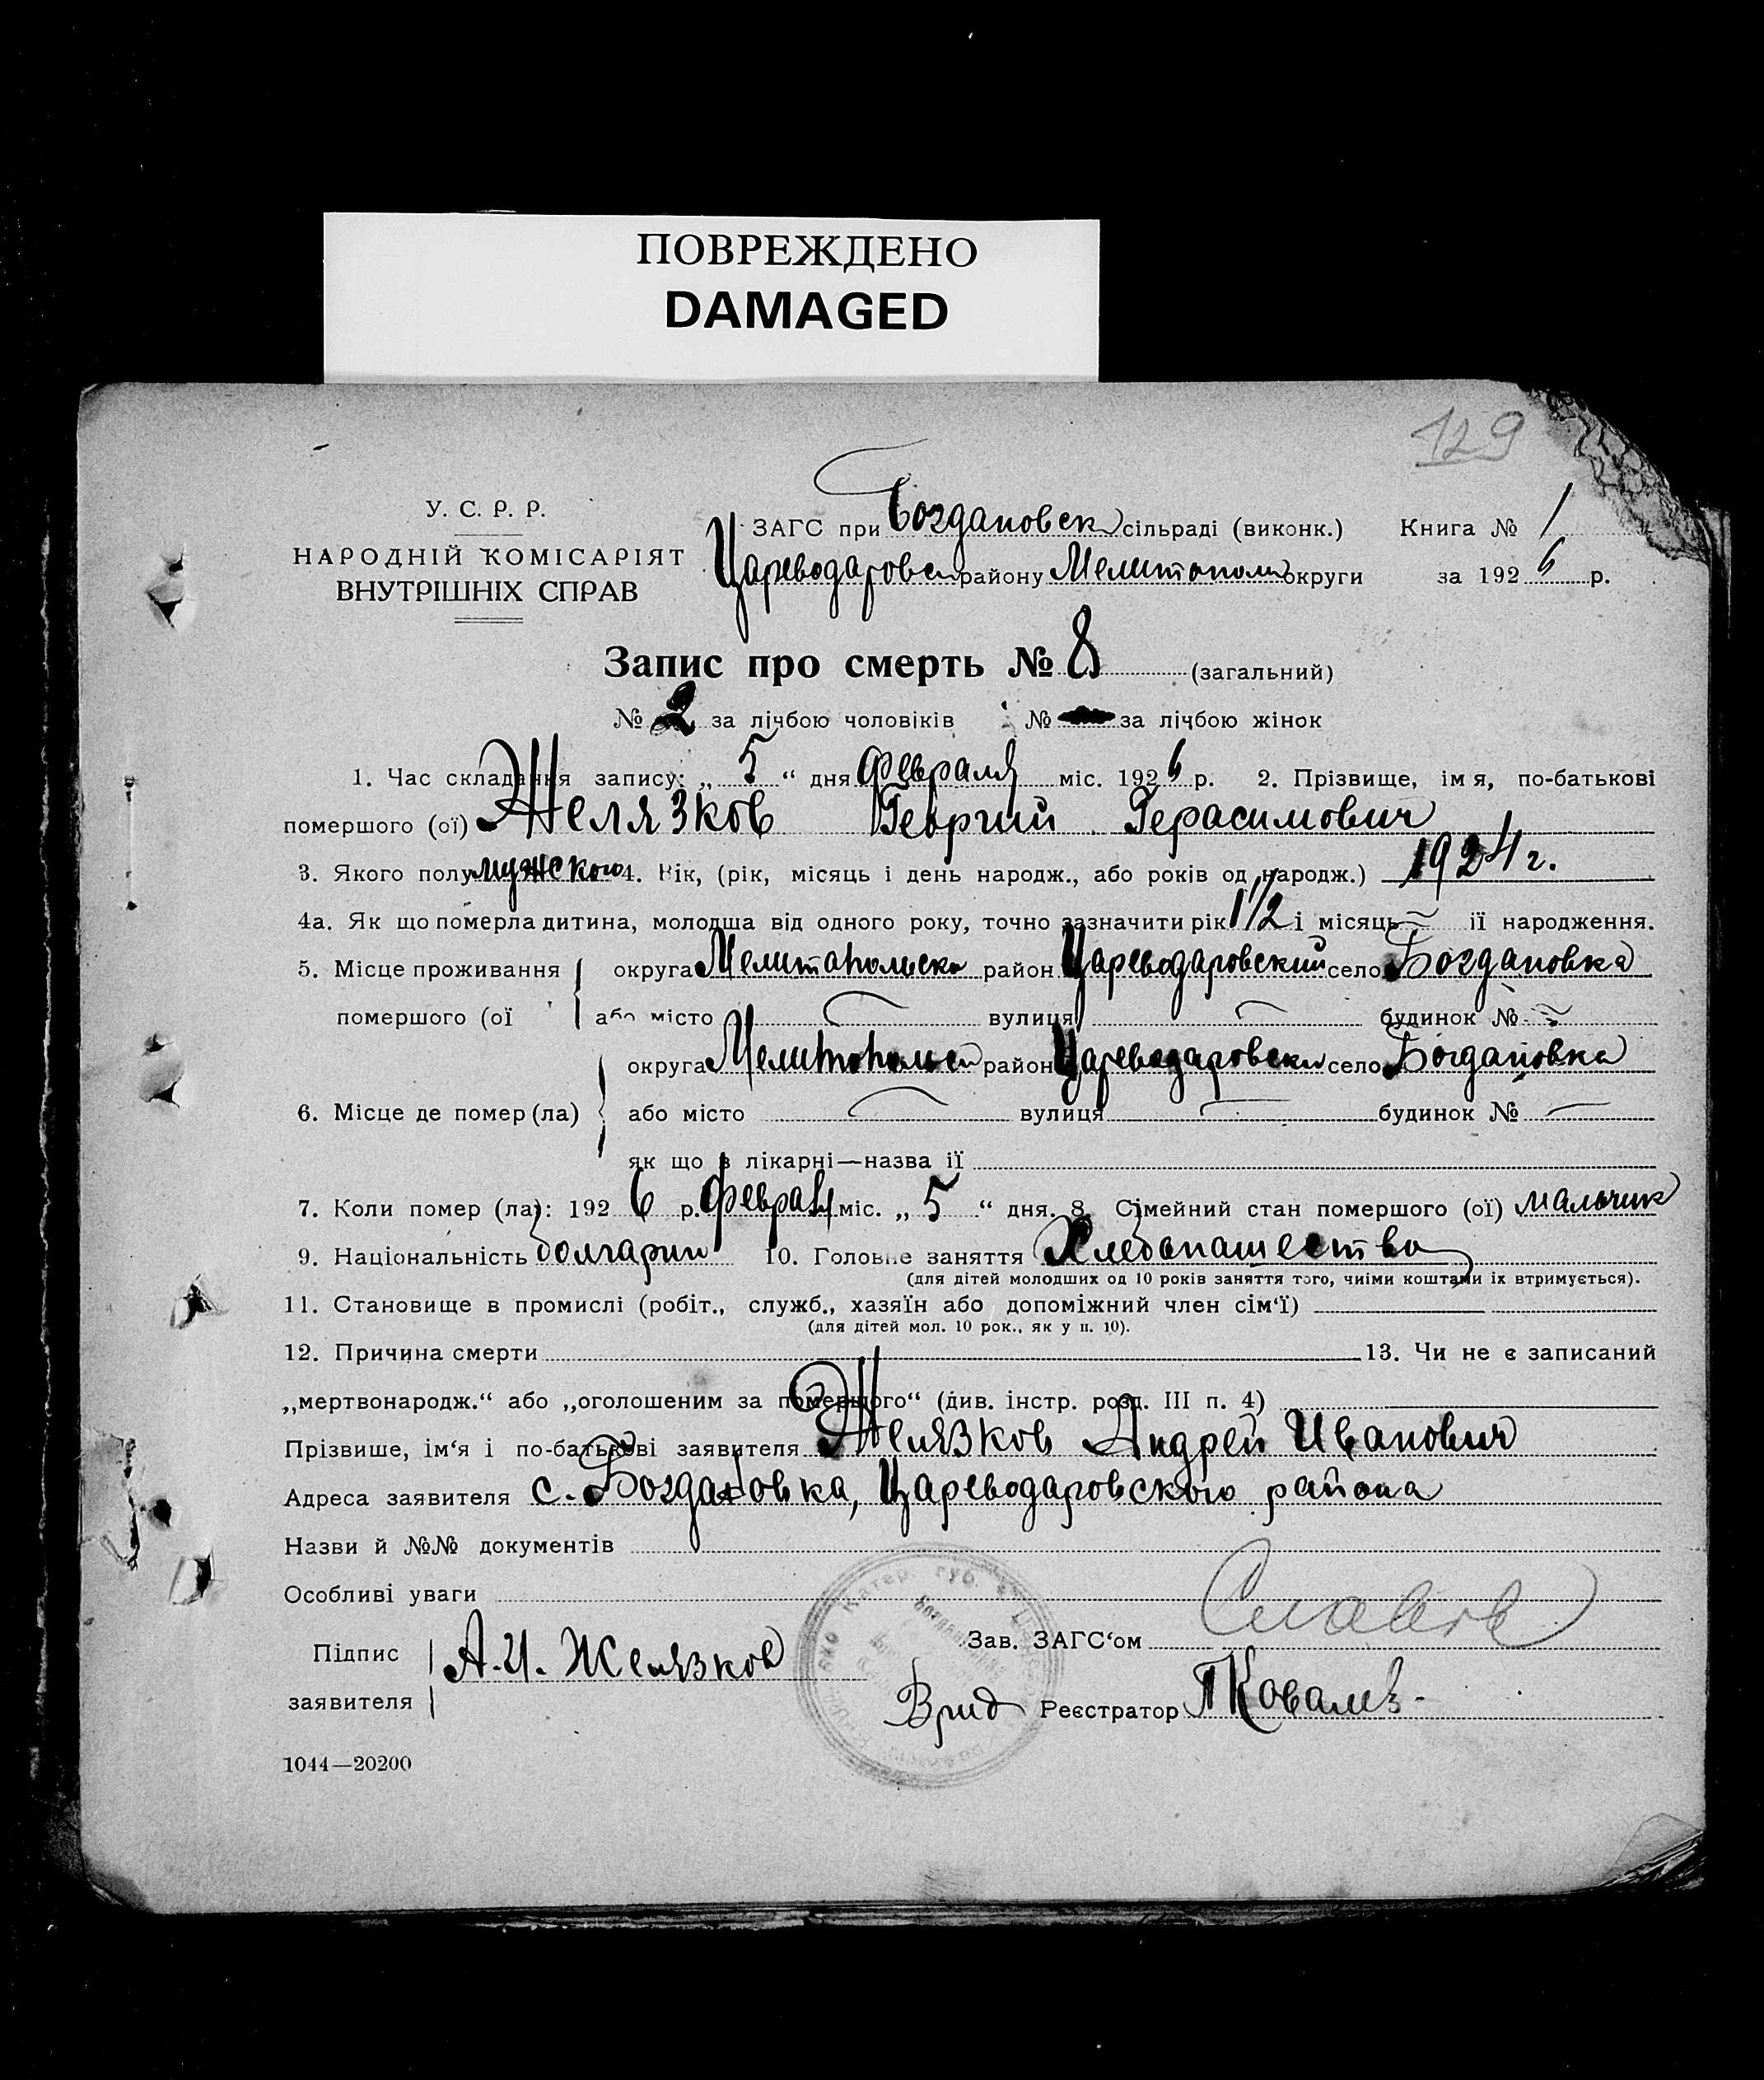 ПОВРЕЖДЕНО
DAMAGED
129
У. С. Р. Р.
НАРОДНІЙ КОМІСАРІЯТ
ВНУТРІШНІХ СПРАВ
ЗАГС при Богдановск сільраді (виконк.) Книга № 1
Цареводаровск району Мелитополь округи за 1926 р.
Запис про смерть № 8 (загальний)
№ 2 за лічбою чоловіків № за лічбою жінок
1. Час складання запису: „ 5 “ дня февраля міс. 1926 р. 2. Прізвище, імя, по-батькові
помершого (ої) Желязков Георгий Герасимович
3. Якого полу мужского 4. Вік, (рік, місяць і день народж., або років од народж.) 1924 г.
4а. Як що померла дитина, молодша від одного року, точно зазначити рік 1 1/2 і місяць ії народження.
5. Місце проживання округа Мелитопольско район Цареводаровский село Богдановка
помершого (ої або місто вулиця будинок №
округа Мелитопольск район Цареводаровски село Богдановка
6. Місце де помер (ла) або місто вулиця будинок №
як що в лікарні—назва ії
7. Коли помер (ла): 1926 р. феврал міс. „ 5 “ дня. 8. Сімейний стан помершого (ої) мальчик
9. Національність болгарин 10. Головне заняття Хлебопашество
(для дітей молодших од 10 років заняття того, чиїми коштами іх втримується).
11. Становище в промислі (робіт., служб., хазяїн або допоміжний член сім‘ї)
(для дітей мол. 10 рок., як у п. 10).
12. Причина смерти 13. Чи не є записаний
„мертвонародж.“ або „оголошеним за помершого“ (див. інстр. розд. III п. 4)
Прізвише, ім‘я і по-батькові заявителя Желязков Андрей Иванович
Адреса заявителя с. Богдановка, Цареводаровского района
Назви й №№ документів
Особливі уваги
Підпис заявителя А. И. Желязков
Зав. ЗАГС‘ом
Врид Реєстратор ПКовалев
1044—20200